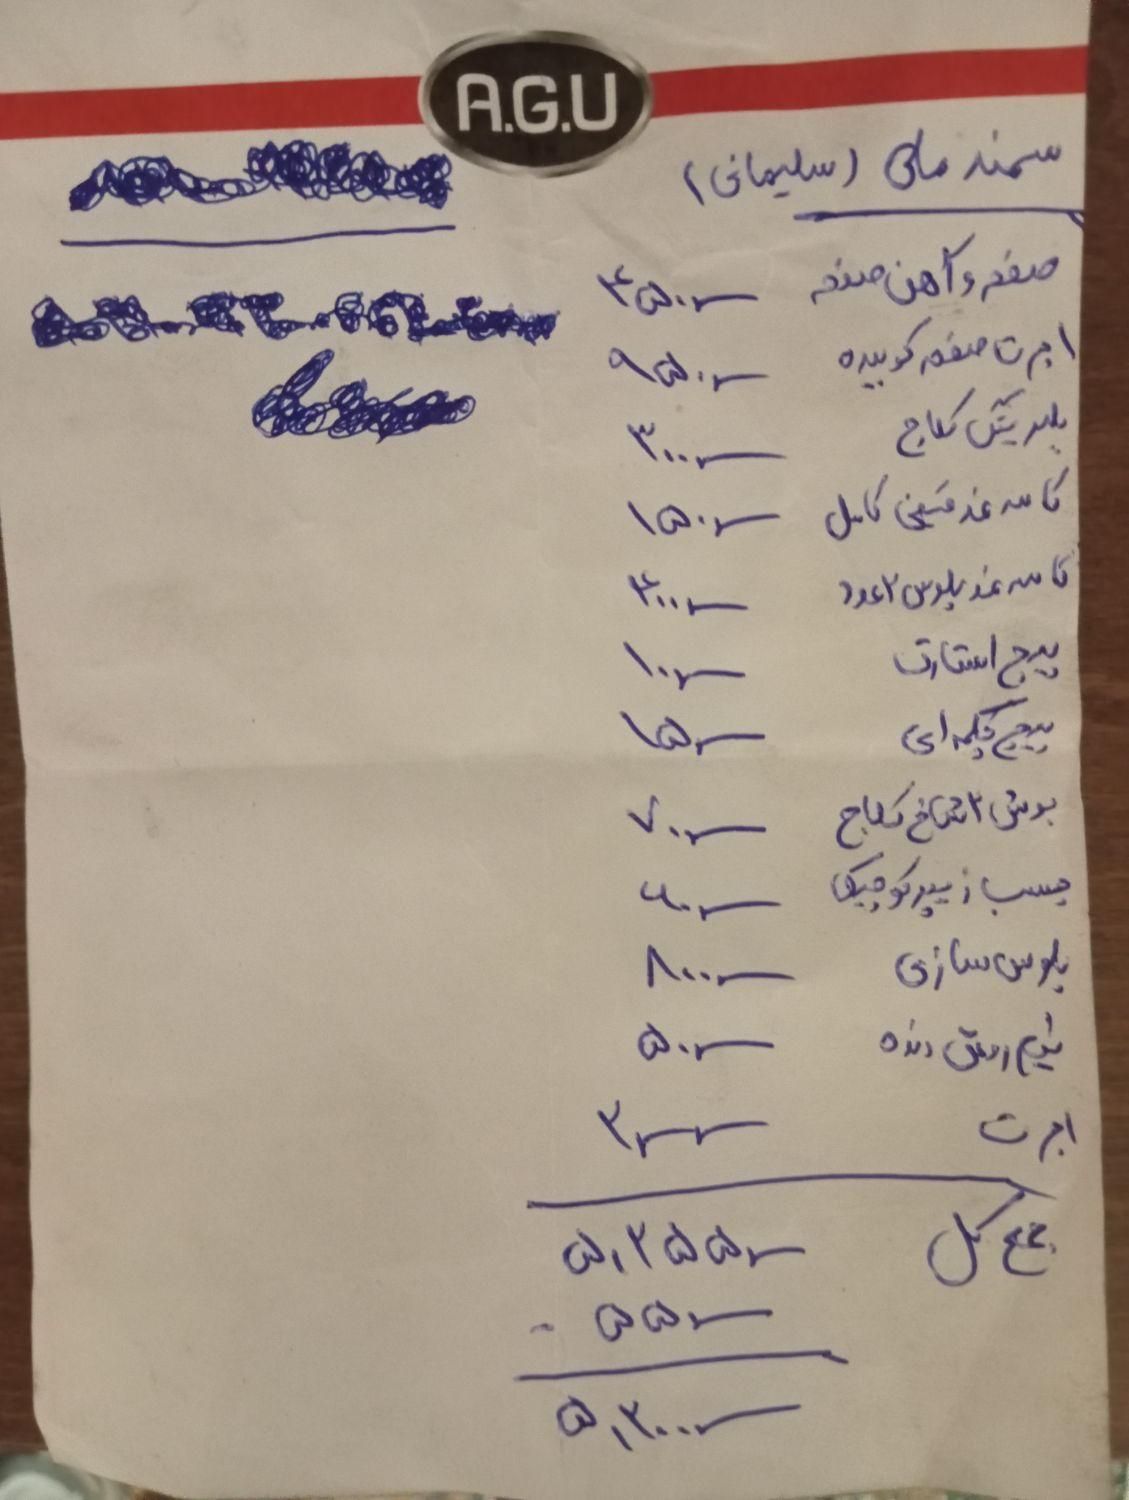 A.G.U
سمند مالی (سلیمانی)
صفحه و آهن صفحه ۴۵۰٫۰۰۰
اجرت صفحه کوبیده ۹۵۰٫۰۰۰
بلبرینگ کلاج ۳۰۰٫۰۰۰
کاسه نمد میل کامل ۱۵۰٫۰۰۰
کاسه نمد پلوس ۲ عدد ۲۰۰٫۰۰۰
پیچ استارت ۱۰٫۰۰۰
پیچ تکمه‌ای ۱۵٫۰۰۰
بوش ۲ شاخ کلاج ۷۰٫۰۰۰
چسب زیپر کوچک ۶۰٫۰۰۰
پلوس سازی ۸۰۰٫۰۰۰
نیم روغن دنده ۵۰٫۰۰۰
اجرت
جمع کل ۵٬۲۵۵٫۰۰۰
- ۵۵٫۰۰۰
۵٬۲۰۰٫۰۰۰